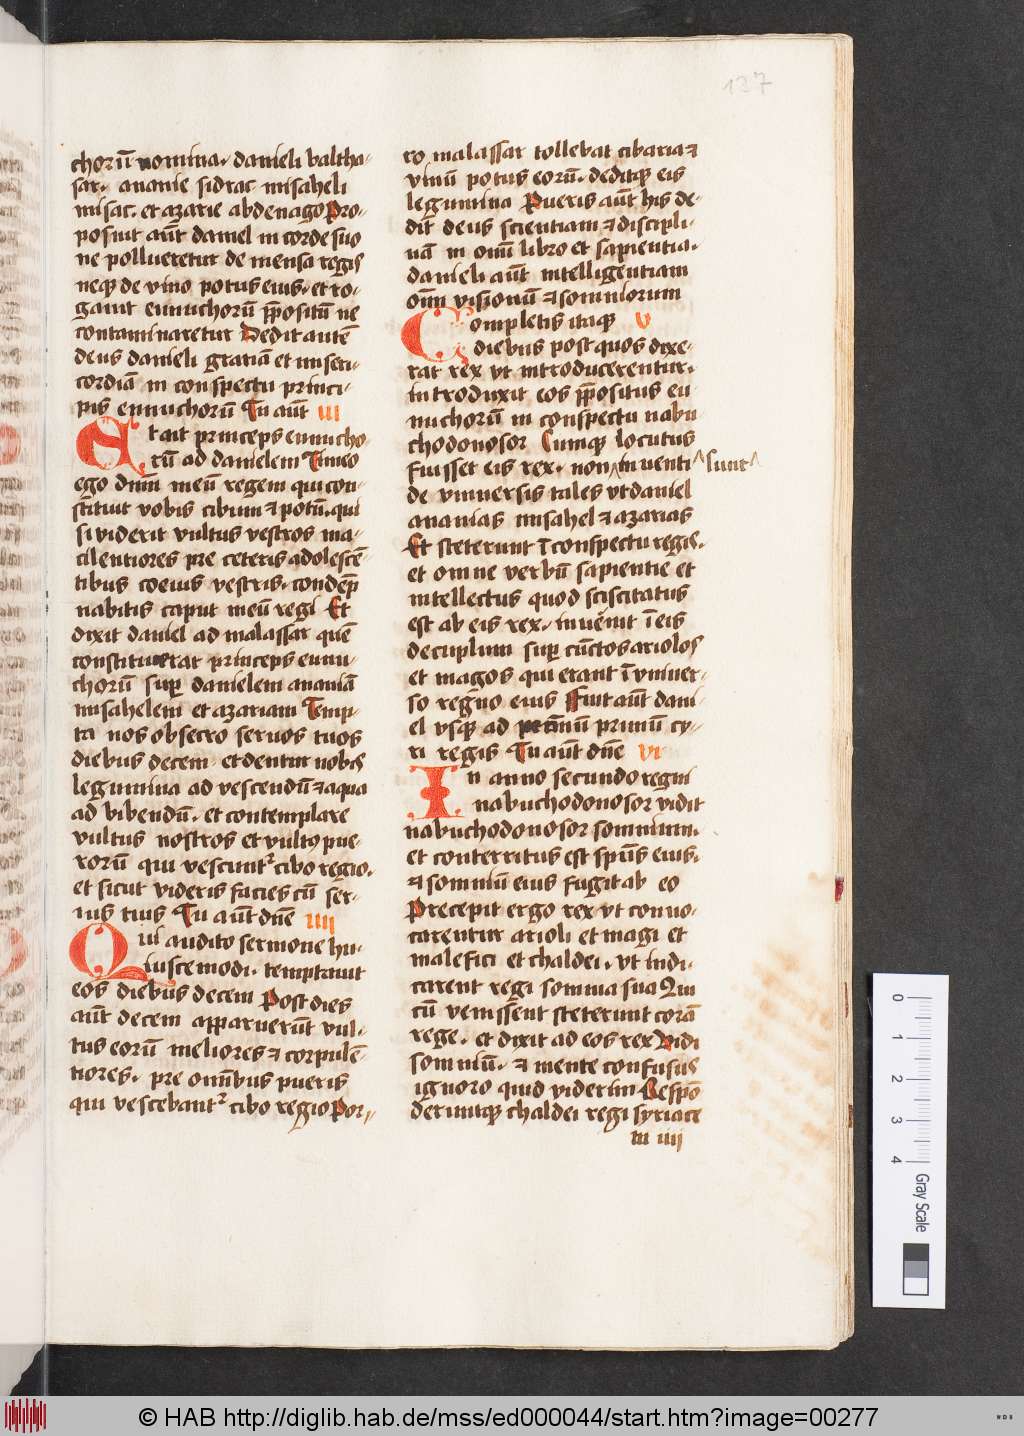 137
chorū nomina. danieli baltha-
sar. ananie sidrac misaheli
misac. et azarie abdenago Pro-
posuit aūt daniel in corde suo
ne pollueretur de mensa regis
neqꝫ de vino potus eius. et ro-
gauit eunuchorū p̄positū ne
contaminaretur Dedit autē
deus danieli gratiā et miseri-
cordiā in conspectu princi-
pis eunuchorū Tu aūt iii
Et ait princeps eunucho
rū ad danielem Timeo
ego dnm̄ meū regem qui con-
stituit vobis cibum ⁊ potū. qui
si viderit vultus vestros ma-
cilentiores pre ceteris adolescē-
tibus coeuis vestris. condēp
nabitis caput meū regi Et
dixit daniel ad malassar quē
constituerat princeps eunu-
chorū suꝑ danielem ananiā
misahelem et azariam Temp-
ta nos obsecro seruos tuos
diebus decem et dentur nobis
legumina ad vescendū ⁊ aqua
ad bibendū. et contemplare
vultus nostros et vultꝰ pue-
rorū qui vescuntᷣ cibo regio.
et sicut videris facies cū ser-
uis tuis Tu aūt dn̄e iiii
Qui audito sermone hu-
iuscemodi. temptauit
eos diebus decem Post dies
aūt decem apparuerūt vul-
tus eorū meliores ⁊ corpulē-
tiores. pre omībus pueris
qui vescebantᷣ cibo regio Por-
ro malassar tollebat cibaria ⁊
vinū potus eorū. deditqꝫ eis
legumina Pueris aūt his de-
dit deus scientiam ⁊ discipli-
nā in omī libro et sapientia.
danieli aūt intelligentiam
oīm visionū ⁊ somniorum
Completis itaqꝫ v
diebus post quos dixe-
rat rex vt introducerentur.
introduxit eos p̄positus eu
nuchorū in conspectu nabu
chodonosor Cumqꝫ locutus
fuisset eis rex. non inuenti sunt
de vniuersis tales vt daniel
ananias misahel ⁊ azarias
Et steterunt ī conspectu regis.
et omne verbū sapientie et
intellectus quod sciscitatus
est ab eis rex. inuēnit ī eis
decuplum suꝑ cūctos ariolos
et magos qui erant ī vniuer-
so regno eius Fuit aūt dani-
el vsqꝫ ad annū primū cy-
ri regis Tu aūt dn̄e vi
In anno secundo regni
nabuchodonosor vidit
nabuchodonosor somnium.
et conterritus est spūs eius.
⁊ somniū eius fugit ab eo
Precepit ergo rex vt conuo-
carentur arioli et magi et
malefici et chaldei. vt indi-
carent regi somnia sua Qui
cū venissent steterunt corā
rege. et dixit ad eos rex Vidi
somniū. ⁊ mente confusus
ignoro quid viderim Respō
deruntqꝫ chaldei regi syriace
m iiii
0 1 2 3 4
Gray Scale
© HAB http://diglib.hab.de/mss/ed000044/start.htm?image=00277